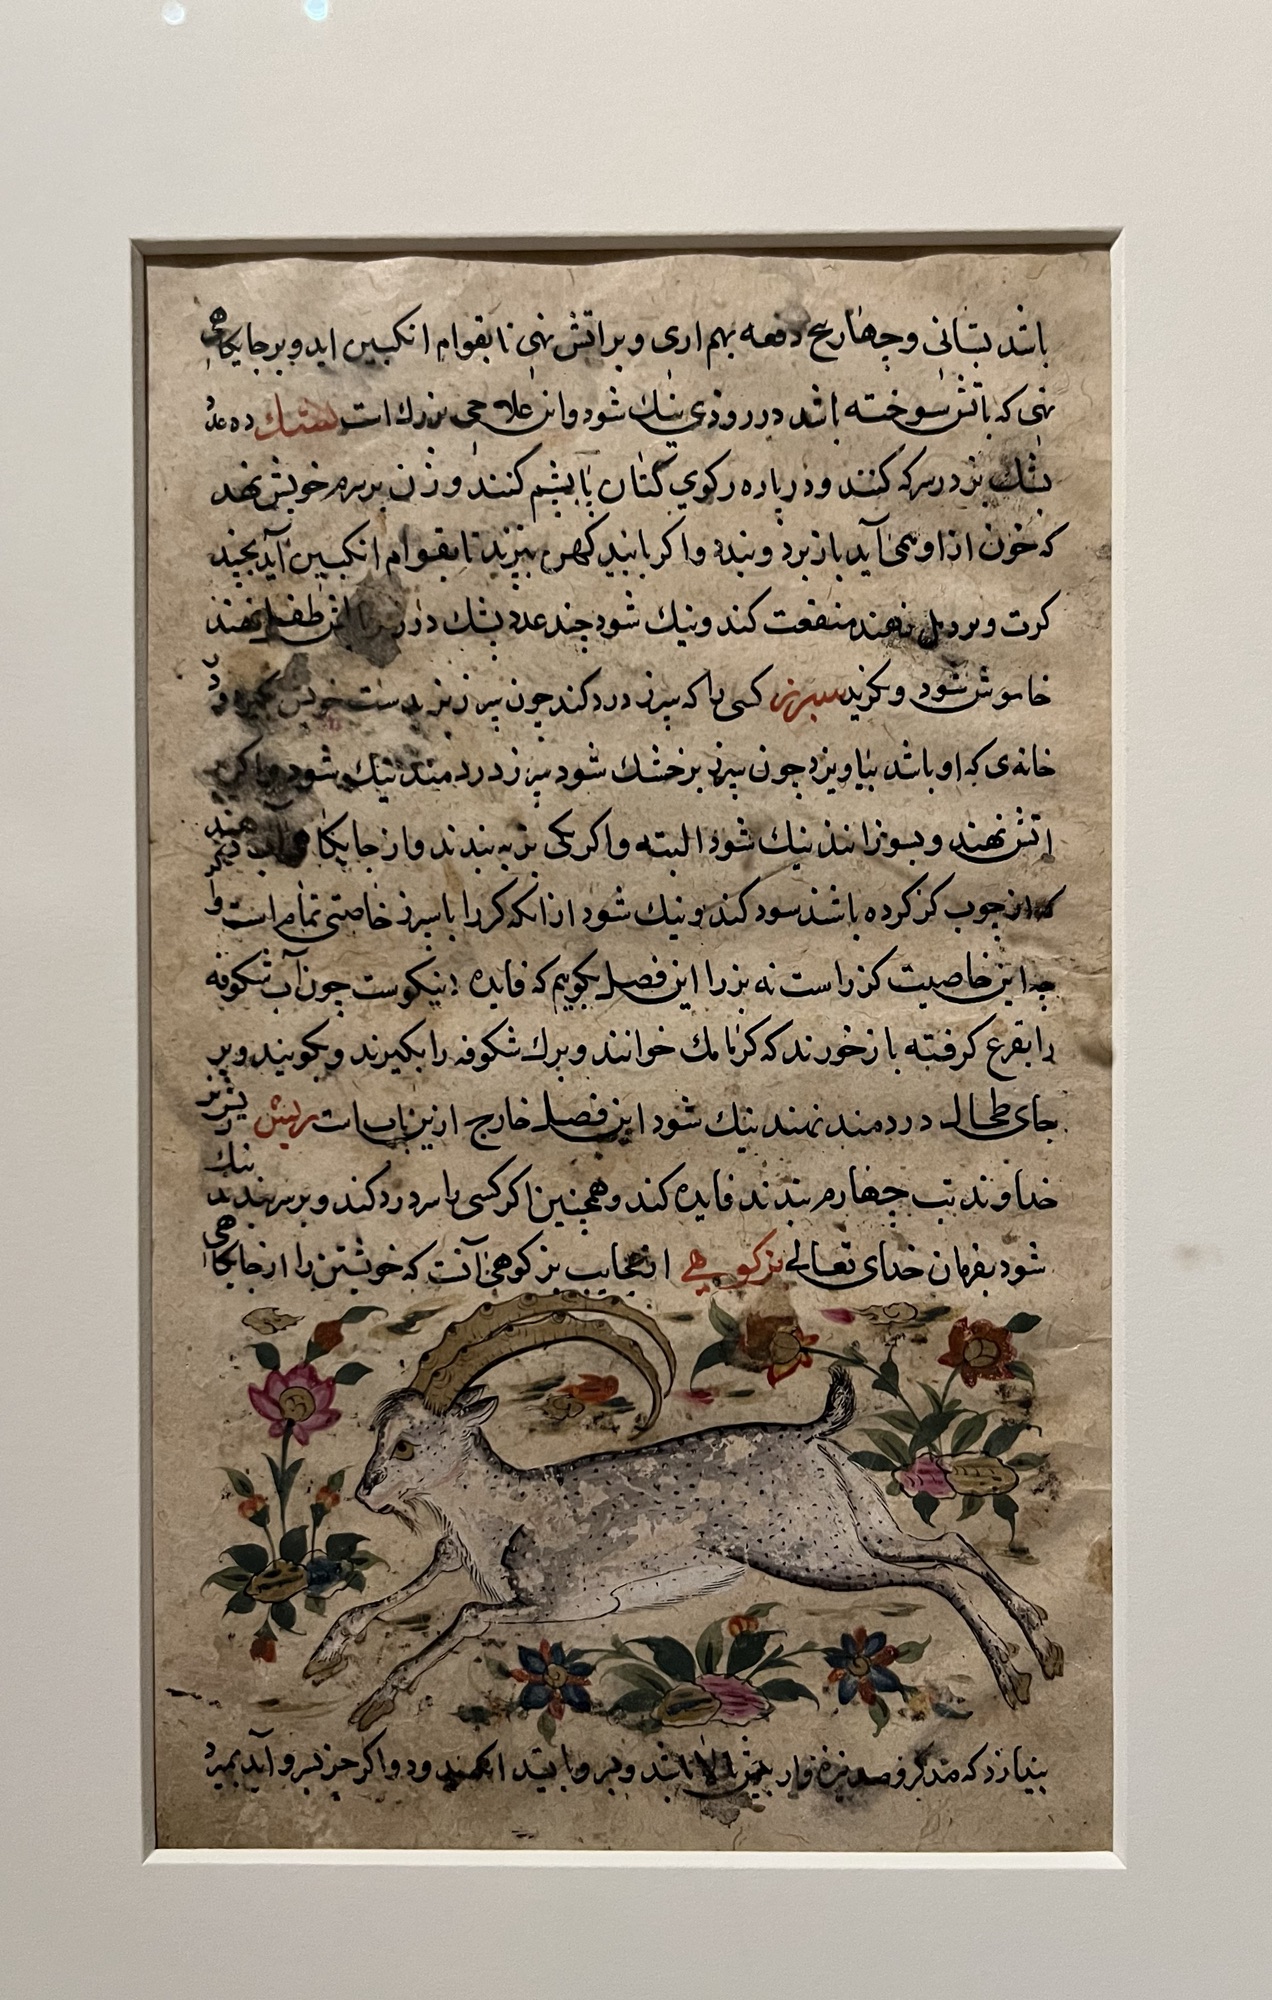 باشد بستانی و چهار یج دفعه بهم اری و براتش نهی تا بقوام انکبین اید و بر جایکاهی
نهی که باتش سوخته باشد در روزی نیك شود و این علاجی بزرك است ده عدد
بشك بز در سرکه کنند و در پاره رکوی کتان یا پشم کنند و زن بر سرم خویش نهد
که خون از او همی آید باز برد و ببندد و اکر بپزند تا بقوام انکبین آید بچند
کرت و بر دمل نهند منفعت کند و نیك شود چند عدد بشك در زیر بالش طفل نهند
خاموش شود و نکرید سپرز کسی را که سپرز درد کند چون سپرز بز بدست خویش کیرد و در
خانه‌ی که او باشد بیاویزد چون سپرز بز خشك شود سپرز دردمند نیك شود و اکر بر
اتش نهند و بسوزانند نیك شود البته و اکر یکی بز به بندند و از جایکاهی آب دهند دیکر
که از چوب کز کرده باشند سود کند و نیك شود از انکه کز را با سپرز خاصیتی تمام است و
چه این خاصیت کز راست نه بز را این فصل بکویم که فایده نیکوست چون آب شکوفه
را بقرع کرفته باز خورند که کزمازك خوانند و برك شکوفه را بکیرند و بکوبند و بر
جای طحال دردمند نهند نیك شود این فصل خارج ازین باب است ریش بز بر
خداوند تب چهارم بندند فایده کند و همچنین اکر کسی را سر درد کند و بر سر بندند نیك
شود بفرمان خدای تعالی بز کوهی از عجایب بز کوهی آنست که خویشتن را از جایکاهی
بیندازد که مقدار صد نیزه وار بیش بالا باشد و بسر و آید بمیرد